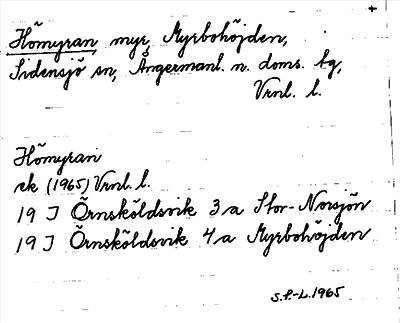 Hömyran myr, Myrbohöjden,
Sidensjö sn, Ångermanl. n. doms. tg,
Vrnl. l.
Hömyran
ek (1965) Vrnl. l.
19 J Örnsköldsvik 3 a Stor-Norsjön
19 J Örnsköldsvik 4 a Myrbohöjden
S.P.-L. 1965